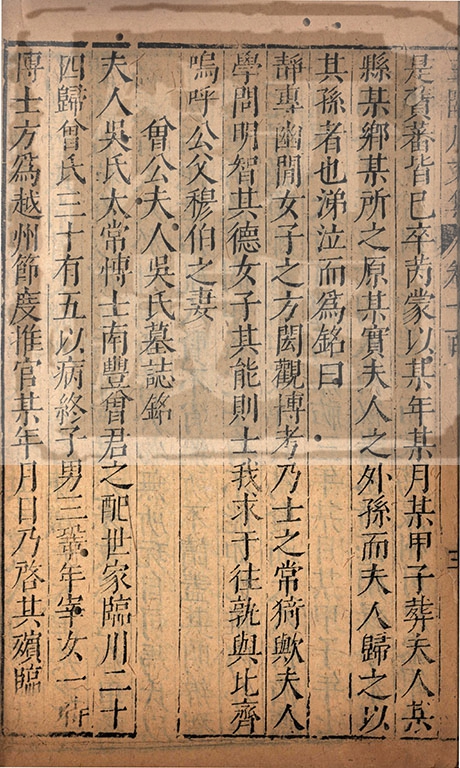 是資蕃皆已卒芮蒙以某年某月某甲子葬夫人其
縣某鄉某所之原某實夫人之外孫而夫人歸之以
其孫者也涕泣而爲銘曰
靜專幽閒女子之方閎觀博考乃士之常猗歟夫人
學問明智其德女子其能則士我求于往孰與比齊
嗚呼公父穆伯之妻
曾公夫人吳氏墓誌銘
夫人吳氏太常博士南豐曾君之配世家臨川二十
四歸曾氏三十有五以病終子男三鞏牟宰女一
博士方爲越州節度推官某年月日乃啓其殯臨